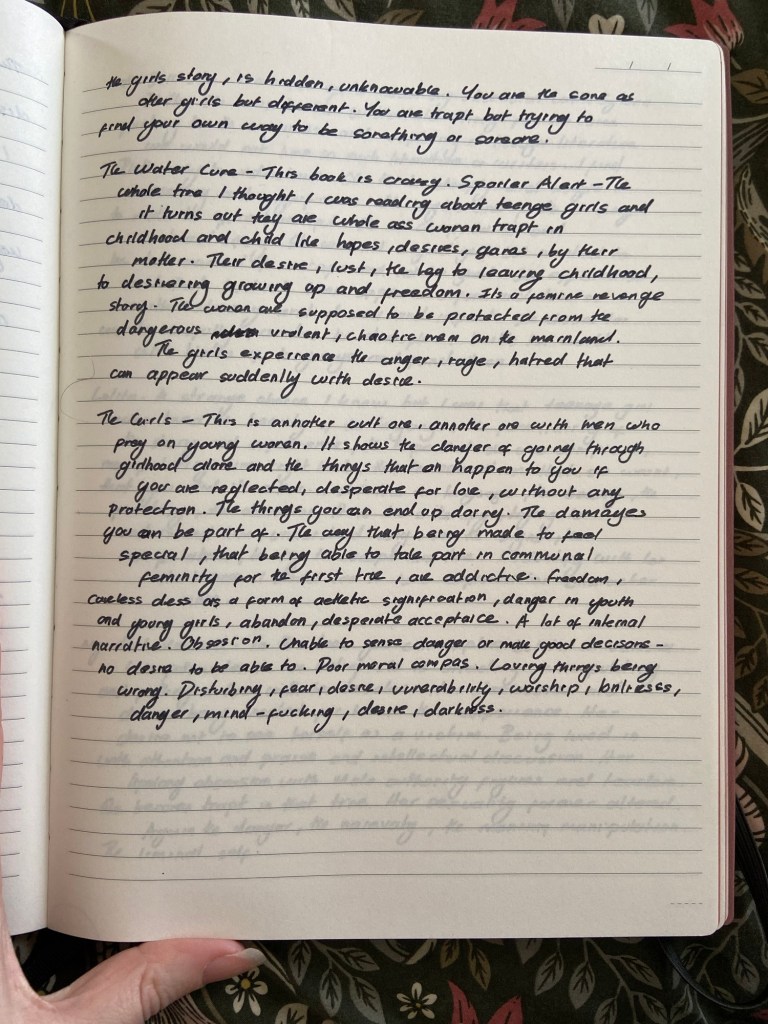 the girls story, is hidden, unknowable. You are the same as
other girls but different. You are trapt but trying to
find your own way to be something or someone.
The Water Cure - This book is crazy. Spoiler Alert - The
whole time I thought I was reading about teenge girls and
it turns out they are whole ass woman trapt in
childhood and child like hopes, desires, games, by their
mother. Their desire, lust, the key to leaving childhood,
to desireing growing up and freedom. Its a femine revenge
story. The woman are supposed to be protected from the
dangerous violent, chaotic men on the mainland.
The girls experience the anger, rage, hatred that
can appear suddenly with desire.
The Girls - This is annother cult one, annother one with men who
prey on young woman. It shows the danger of going through
girlhood alone and the things that can happen to you if
you are neglected, desperate for love, without any
protection. The things you can end up doing. The damages
you can be part of. The way that being made to feel
special, that being able to take part in communal
feminity for the first time, are addictive. Freedom,
careless dess as a form of aethetic signification, danger in youth
and young girls, abandon, desperate acceptance. A lot of internal
narritive. Obsession. Unable to sense danger or make good decisions -
no desire to be able to. Poor moral compas. Loving things being
wrong. Disturbing, fear, desire, vunerability, worship, lonliness,
danger, mind-fucking, desire, darkness.